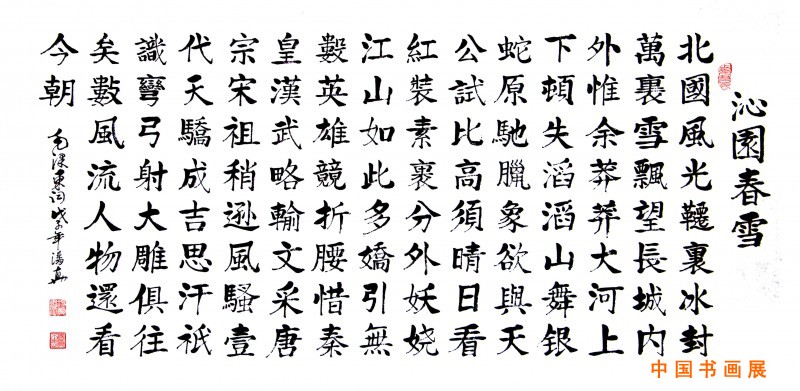 沁園春雪
北國風光韆裏冰封
萬裏雪飄望長城内
外惟余莽莽大河上
下頓失滔滔山舞銀
蛇原馳臘象欲與天
公試比高須晴日看
紅裝素裹分外妖娆
江山如此多嬌引無
數英雄競折腰惜秦
皇漢武略輸文采唐
宗宋祖稍遜風騷壹
代天驕成吉思汗祇
識彎弓射大雕俱往
矣數風流人物還看
今朝
毛澤東詞戊子年
中国书画展